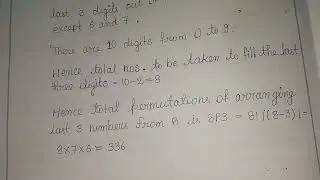 last 3 digits out
except 6 and 7.
There are 10 digits from 0 to 9.
Hence total nos. to be taken to fill the last
three digits = 10-2=8
Hence total permutations of arranging
last 3 numbers from 8 is 8P3 = 8!/(8-3)! =
8x7x6 = 336